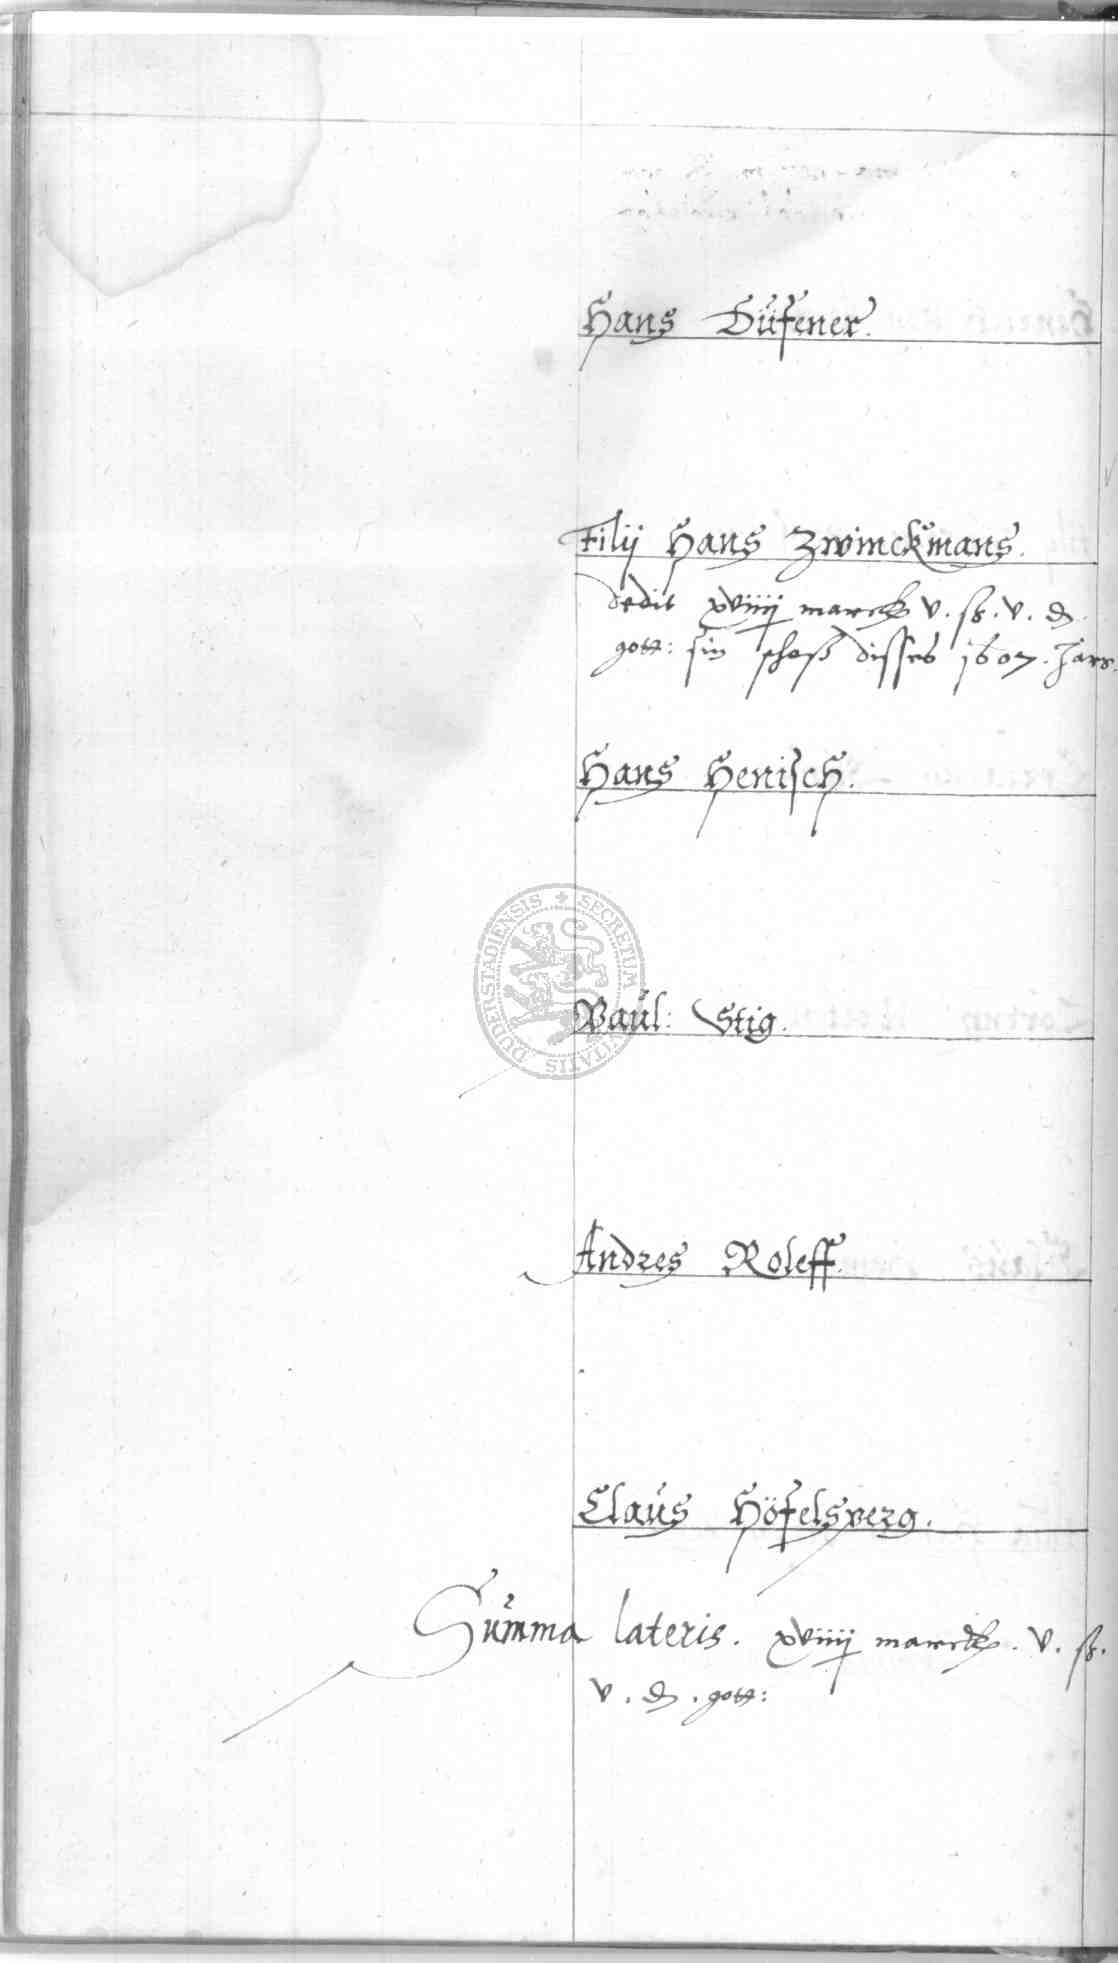 Hans Düfener.
Filij Hans Zwinckmans.
dedit xviiij marck v. ß. v. d
gott: sin schoß disses 1607. Jars.
Hans Henisch.
DUDERSTADIENSIS + SECRETUM CIVITATIS
Paul: Stig.
Andres Roleff.
Claus Höfelsberg.
Summa lateris. xviiij marck. v. ß.
v. d. gott: